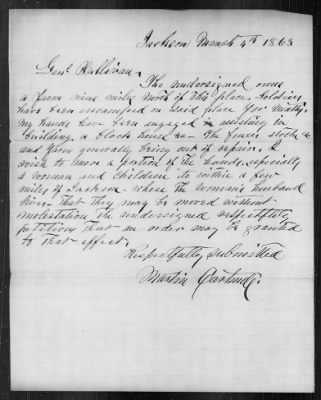 Jackson March 4th 1863
Genl. Sullivan.
The undersigned owns
a farm nine miles North of this place. Soldiers
have been encamped on said place for
My hands have been engaged in assisting in
building a block house &c - The fences stock &c
and farm generally being out of repair. I
wish to move a portion of the hands, especially
a woman and children to within a few
miles of Jackson where the woman's husband
lives - that they may be moved without
molestation the undersigned respectfully
petitions that an order may be granted
to that effect.
Respectfully submitted
Martin